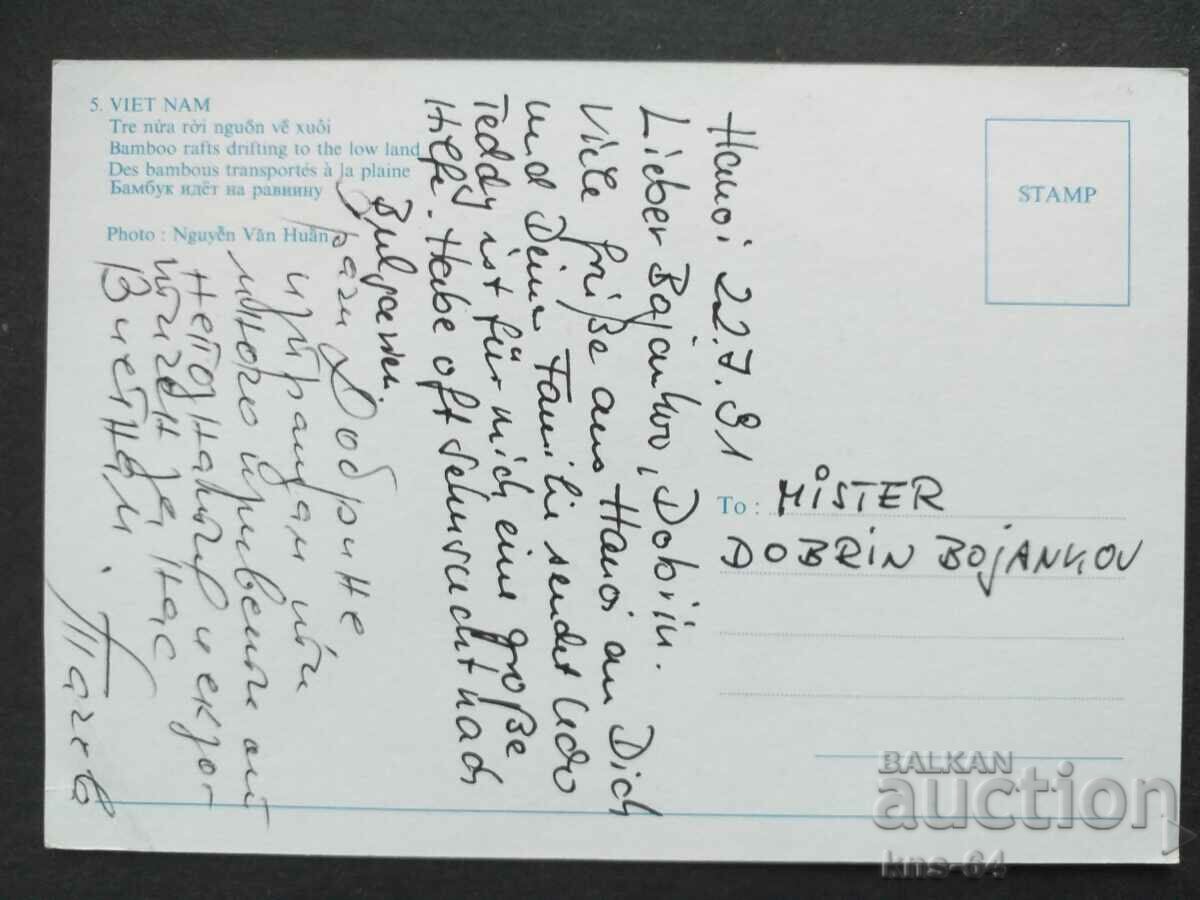 5. VIET NAM
Tre nứa rời nguồn về xuôi
Bamboo rafts drifting to the low land
Des bambous transportés à la plaine
Бамбук идёт на равнину
Photo : Nguyễn Văn Huân
STAMP
Hanoi 22.7.91
Lieber Bajankov, Dobrin.
Viele Grüße aus Hanoi an Dich
und Deine Familie sendet Udo
Teddy ist für mich eine große
Hilfe. Habe oft Sehnsucht nach
Bulgarien.
Драги Добрине
изпращам ти
много приветы от
непознатия и екзо-
тичен за нас
Виетнам.
To : MISTER
DOBRIN BOJANKOV
BALKAN
auction
kns-64